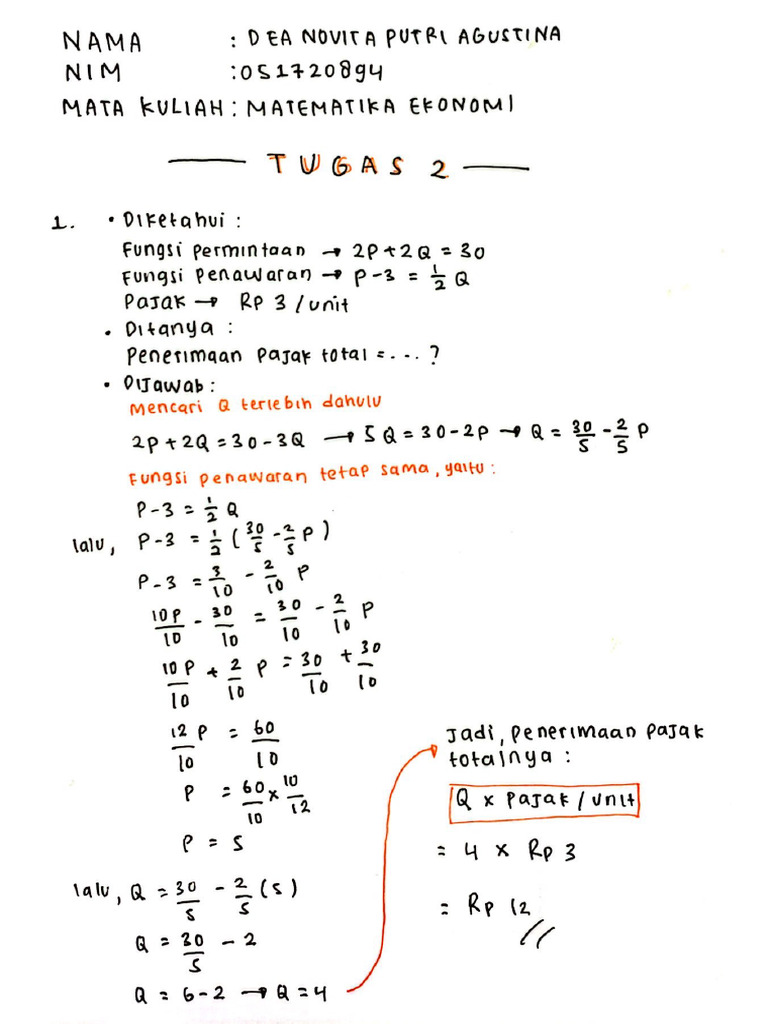 NAMA : DEA NOVITA PUTRI AGUSTINA
NIM : 051720894
MATA KULIAH : MATEMATIKA EKONOMI
TUGAS 2
1. • Diketahui :
Fungsi Permintaan → 2P + 2Q = 30
Fungsi Penawaran → P - 3 = 1/2 Q
Pajak → Rp 3 / unit
• Ditanya :
Penerimaan Pajak total = ... ?
• Dijawab :
Mencari Q terlebih dahulu
2P + 2Q = 30 - 3Q → 5Q = 30 - 2P → Q = 30/5 - 2/5 P
Fungsi penawaran tetap sama, yaitu :
P - 3 = 1/2 Q
lalu, P - 3 = 1/2 ( 30/5 - 2/5 P )
P - 3 = 3/10 - 2/10 P
10P/10 - 30/10 = 30/10 - 2/10 P
10P/10 + 2/10 P = 30/10 + 30/10
12/10 P = 60/10
P = 60/10 x 10/12
P = 5
lalu, Q = 30/5 - 2/5 (5)
Q = 30/5 - 2
Q = 6 - 2 → Q = 4
Jadi, Penerimaan Pajak
totalnya :
Q x Pajak / unit
= 4 x Rp 3
= Rp 12 //